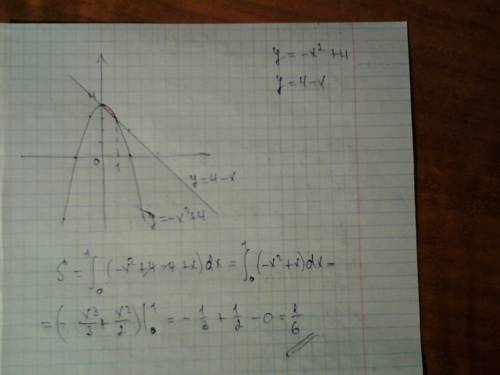 y = -x² + 4
y = 4 - x
4
0
1
y = 4 - x
y = -x² + 4
S = ∫₀¹ (-x² + 4 - 4 + x) dx = ∫₀¹ (-x² + x) dx =
= (- x³/3 + x²/2) |₀¹ = - 1/3 + 1/2 - 0 = 1/6